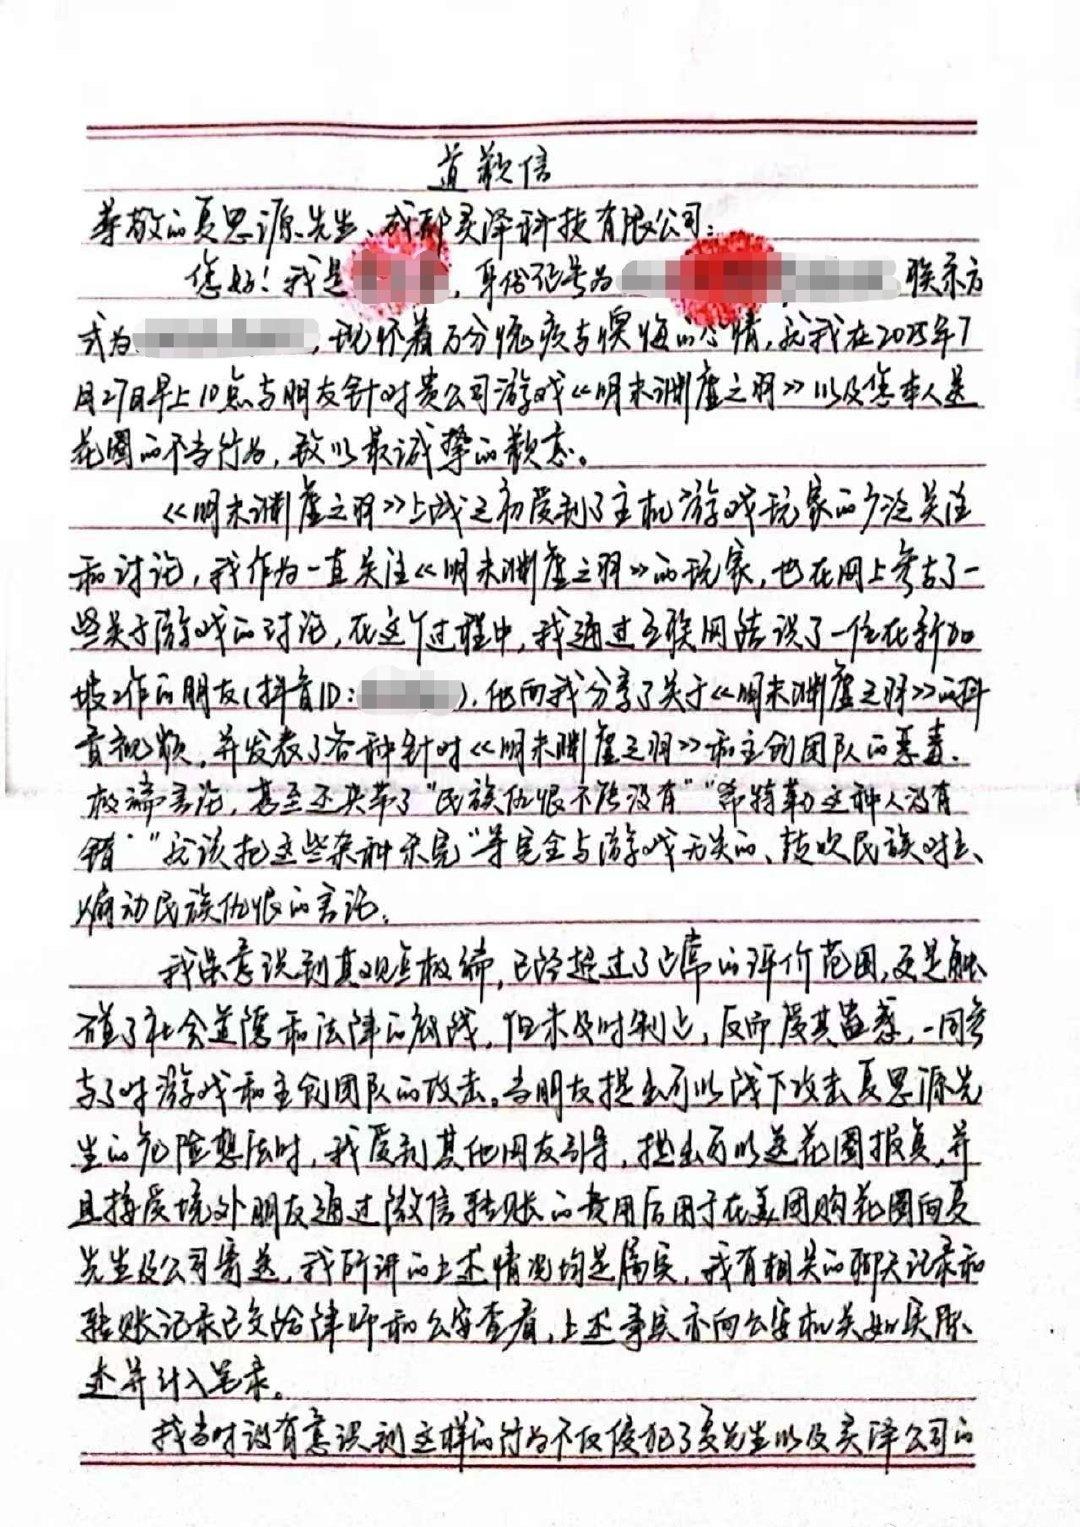 道歉信
尊敬的夏思源先生、成都灵泽科技有限公司:
您好!我是，身份证号为 联系方
式为，现怀着万分愧疚与懊悔的心情，就我在2025年7
月27日早上10点与朋友针对贵公司游戏《明末渊虚之羽》以及您本人送
花圈的不当行为，致以最诚挚的歉意。
《明末渊虚之羽》上线之初受到了主机游戏玩家的广泛关注
和讨论，我作为一直关注《明末渊虚之羽》的玩家，也在网上参与了一
些关于游戏的讨论，在这个过程中，我通过互联网结识了一位在新加
坡工作的朋友(抖音ID:)，他向我分享了关于《明末渊虚之羽》的抖
音视频，并发表了各种针对《明末渊虚之羽》和主创团队的恶毒、
极端言论，甚至还夹带了"民族仇恨不能没有""希特勒这种人没有
错""就该把这些杂种杀完"等完全与游戏无关的、鼓吹民族对立、
煽动民族仇恨的言论。
我虽意识到其观点极端，已经超过了正常的评价范围，更是触
碰了社会道德和法律的底线，但未及时制止，反而受其蛊惑，一同参
与了对游戏和主创团队的攻击。当朋友提出可以线下攻击夏思源先
生的危险想法时，我受到其他网友引导，提出可以送花圈报复，并
且接受境外朋友通过微信转账的费用后用于在美团购花圈向夏
先生及公司寄送，我所讲的上述情况均是属实，我有相关的聊天记录和
转账记录已交给律师和公安查看，上述事实亦向公安机关如实陈
述并计入笔录。
我当时没有意识到这样的行为不仅侵犯了夏先生以及灵泽公司的